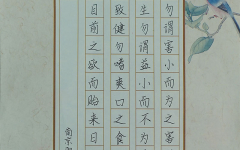 勿谓害小而为之害
生勿谓益小而不为
致健勿嗜爽口之食
目前之欲而贻来日
南京